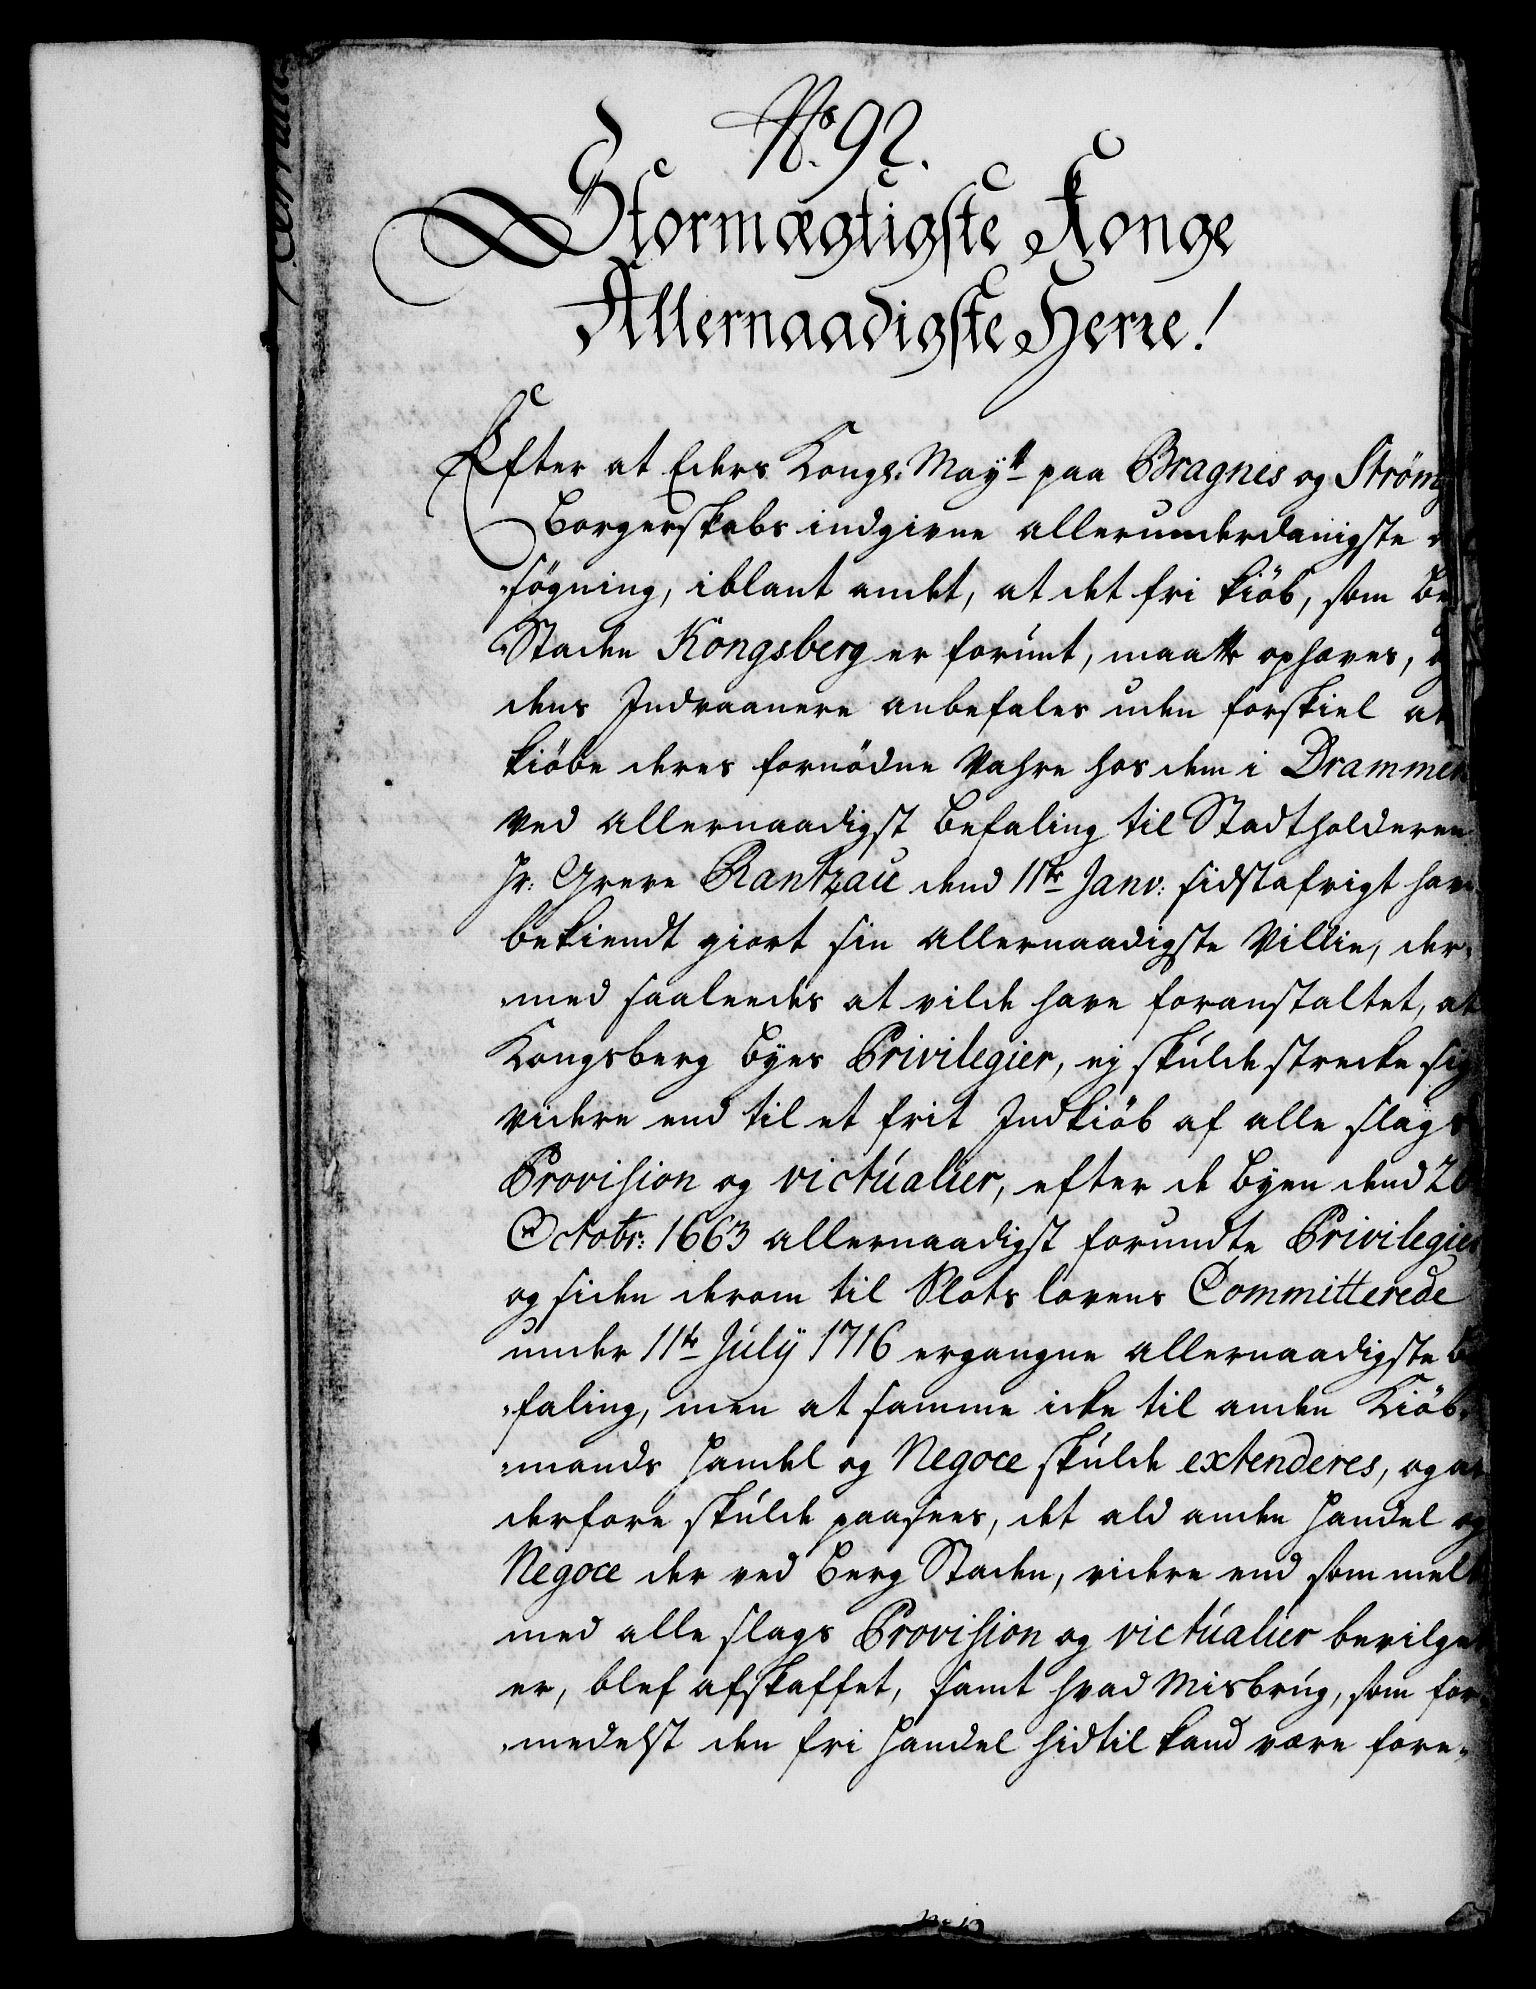 No. 92.
Stormægtigste Konge
Allernaadigste Herre!
Efter at Eders Kongl: Mayᵗᵗ paa Bragnes og Strøms
Borgerskabs indgivne allerunderdanigste
søgning, iblant andet, at det fri kiöb, som Be
Staden Kongsberg er forunt, maatte ophæves, og
dens Indvaanere anbefales uden forskiel at
kiöbe deres fornödne Vahre hos dem i Drammen
ved allernaadigst Befaling til Stadtholderen
Hr: Greve Rantzau dend 11te Janv: sidstafvigt have
bekiendt giort sin allernaadigste Villie, der-
med saaleedes at vilde have foranstaltet, at
Kongsberg Byes Privilegier, ej skulde strecke sig
videre end til et frit Indkiöb af alle slags
Provision og victualier, efter de Byen dend 20
Octobr: 1663 allernaadigst forundte Privilegier
og siden derom til Slots lovens Committerede
under 11te July 1716 ergangne allernaadigste Be
faling, men at samme icke til anden Kiöb-
mands Handel og Negoce skulde extenderes, og at
derfore skulde paasees, det ald anden Handel og
Negoce der ved Berg Staden, videre end som melt
med alle slags Provision og victualier bevilget
er, blef afskaffet, samt hvad Misbrug, som for-
medelst den fri Handel hidtil kand være fore-